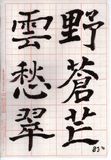 野蒼茫
雲愁翠